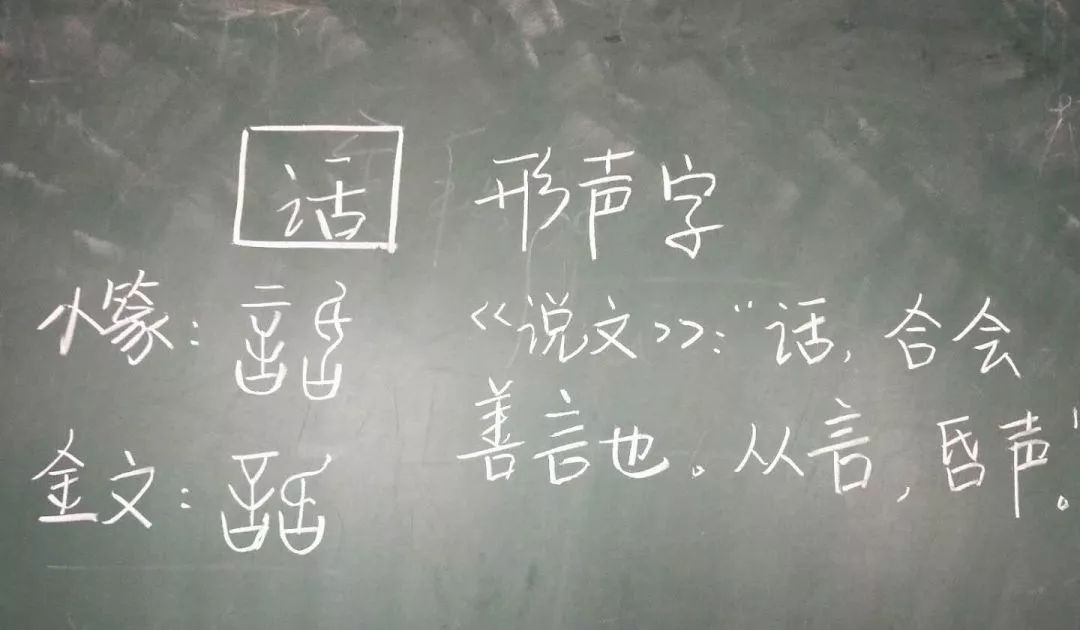 话 形声字
小篆：
《说文》："话，合会
善言也。从言，昏声。"
金文：